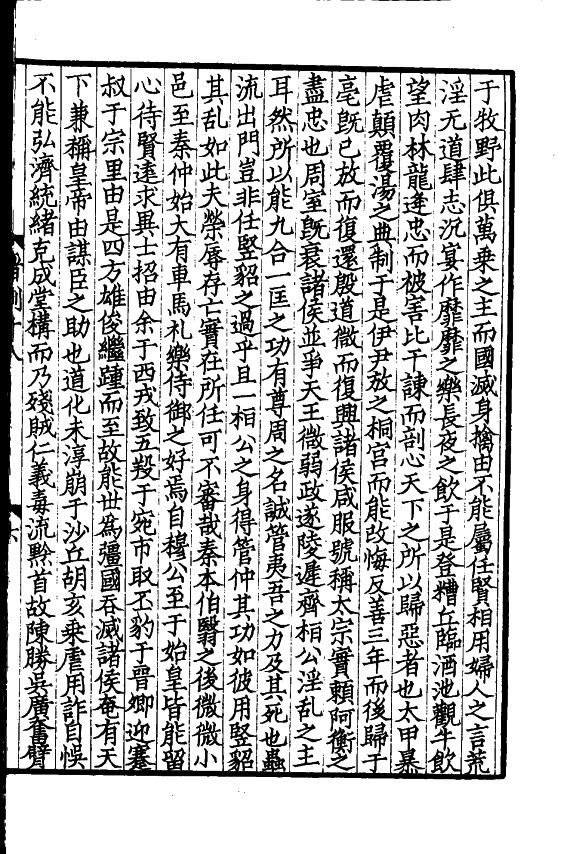 于牧野此俱萬乗之主而國滅身擒由不能屬任賢相用婦人之言荒
淫无道肆志沉宴作靡靡之樂長夜之飲于是登糟丘臨酒池觀牛飲
望肉林龍逄忠而被害比干諫而剖心天下之所以歸惡者也太甲暴
虐顛覆湯之典制于是伊尹放之桐宫而能改悔反善三年而後歸于
亳既已放而復還殷道微而復興諸侯咸服號稱太宗實賴阿衡之
盡忠也周室既衰諸侯並爭天王微弱政遂陵遲齊桓公淫乱之主
耳然所以能九合一匡之功有尊周之名誠管夷吾之力及其死也蟲
流出門豈非任竪貂之過乎且一桓公之身得管仲其功如彼用竪貂
其乱如此夫榮辱存亡實在所任可不審哉秦本伯翳之後微微小
邑至秦仲始大有車馬礼樂侍御之好焉自穆公至于始皇皆能留
心待賢逺求異士招由余于西戎致五羖于宛市取丕豹于晋卿迎蹇
叔于宗里由是四方雄俊繼踵而至故能世為彊國吞滅諸侯奄有天
下兼稱皇帝由謀臣之助也道化未淳崩于沙丘胡亥乗虐用詐自悮
不能弘濟統緒克成堂構而乃殘賊仁義毒流黔首故陳勝吴廣奮臂